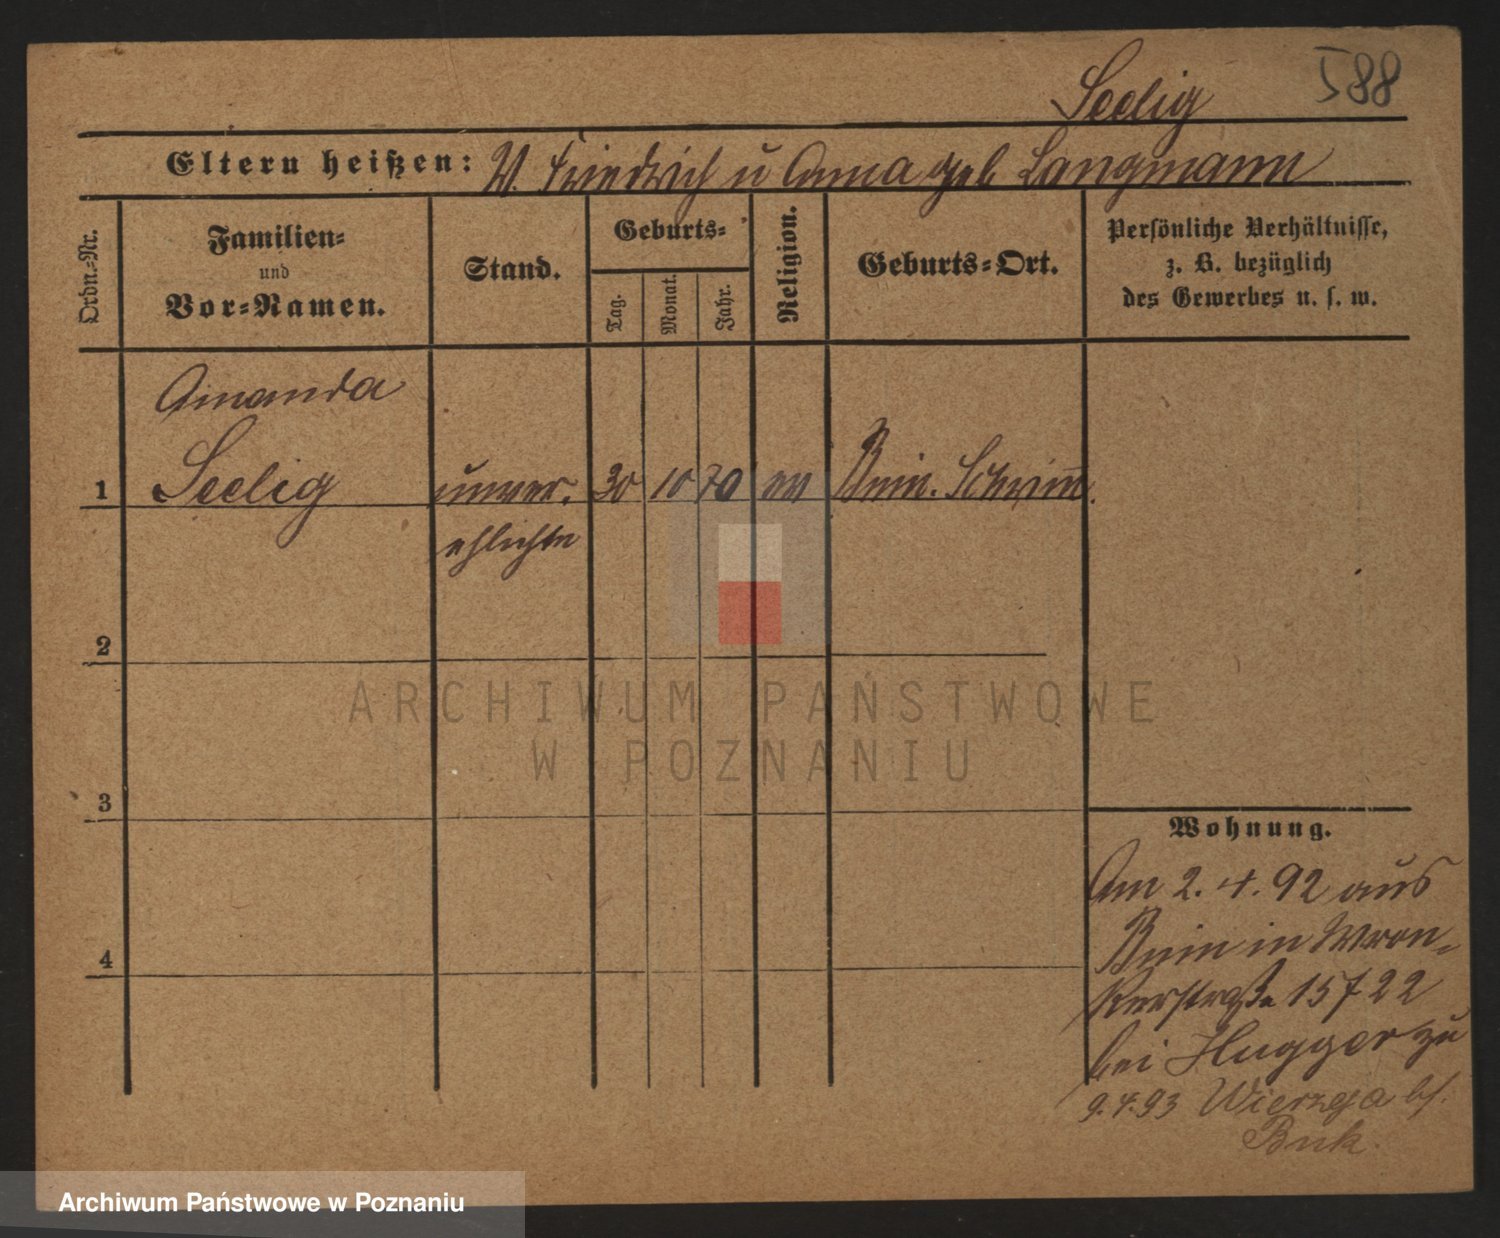 588
Seelig
Eltern heißen: V. Friedrich u Anna geb Langmann
Ordn.-Nr.
Familien-
und
Vor-Namen.
Stand.
Geburts-
Tag.
Monat.
Jahr.
Religion.
Geburts-Ort.
Persönliche Verhältnisse,
z. B. bezüglich
des Gewerbes u. s. w.
Amanda
1 Seelig unver. 30 10 70 ev Bnin. Schrim̄.
ehlichte
2
3
4
ARCHIWUM PAŃSTWOWE
W POZNANIU
Wohnung.
Am 2. 4. 92 aus
Bnin in Wron-
kerstraße 15 722
bei Hugger zu
9.4.93 Wierzeja bf.
Buk.
Archiwum Państwowe w Poznaniu